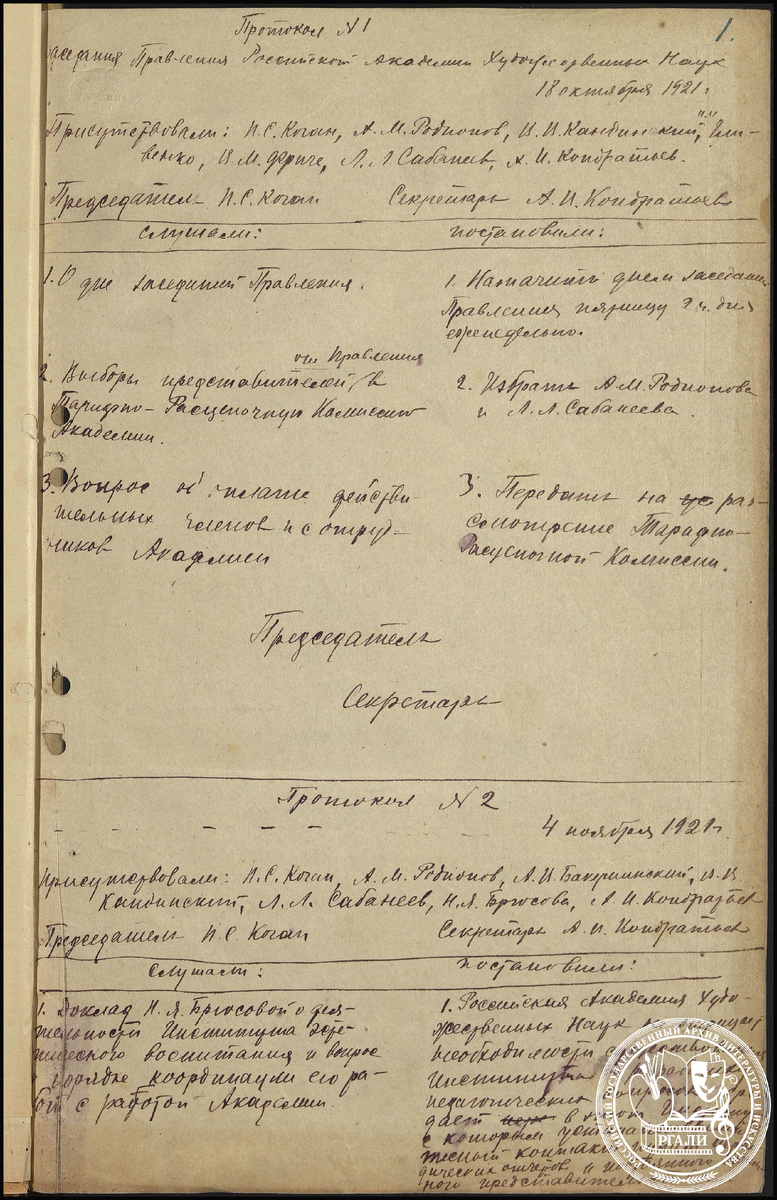 Протокол N1
1.
заседания Правления Российской Академии Художественных Наук
18 октября 1921 г.
Присутствовали: П.С. Коган, А.М. Родионов, В.В. Кандинский,
венко, В.М. Фриче, Л.Л. Сабанеев, А.И. Кондратьев.
Председатель П.С. Коган Секретарь А.И. Кондратьев
слушали: постановили:
1. О дне заседаний Правления.
1. Назначить днем заседани
Правления пятницу 2 ч. дня
еженедельно.
от Правления
2. Выборы представителей в
Тарифно-Расценочную Комиссию
Академии.
2. Избрать А.М. Родионова
и Л.Л. Сабанеева.
3. Вопрос об оплате действи-
тельных членов и сотруд-
ников Академии
3. Передать на ус рас-
смотрение Тарифно-
Расценочной Комиссии.
Председатель
Секретарь
Протокол N2
4 ноября 1921 г.
Присутствовали: П.С. Коган, А.М. Родионов, А.В. Бакушинский, В.В.
Кандинский, Л.Л. Сабанеев, Н.Я. Брюсова, А.И. Кондратьев
Председатель П.С. Коган Секретарь А.И. Кондратьев
слушали: постановили:
1. Доклад Н.Я. Брюсовой о дея-
тельности Института Эсте-
тического воспитания и вопрос
о порядке координации его ра-
бот с работой Академии.
1. Российская Академия Худо-
жественных Наук
необходимости
Института
педагогическим
дает в
с которым
тесный контакт
дических отчетов и
ного представителя
РОССИЙСКИЙ ГОСУДАРСТВЕННЫЙ АРХИВ ЛИТЕРАТУРЫ И ИСКУССТВА
РГАЛИ